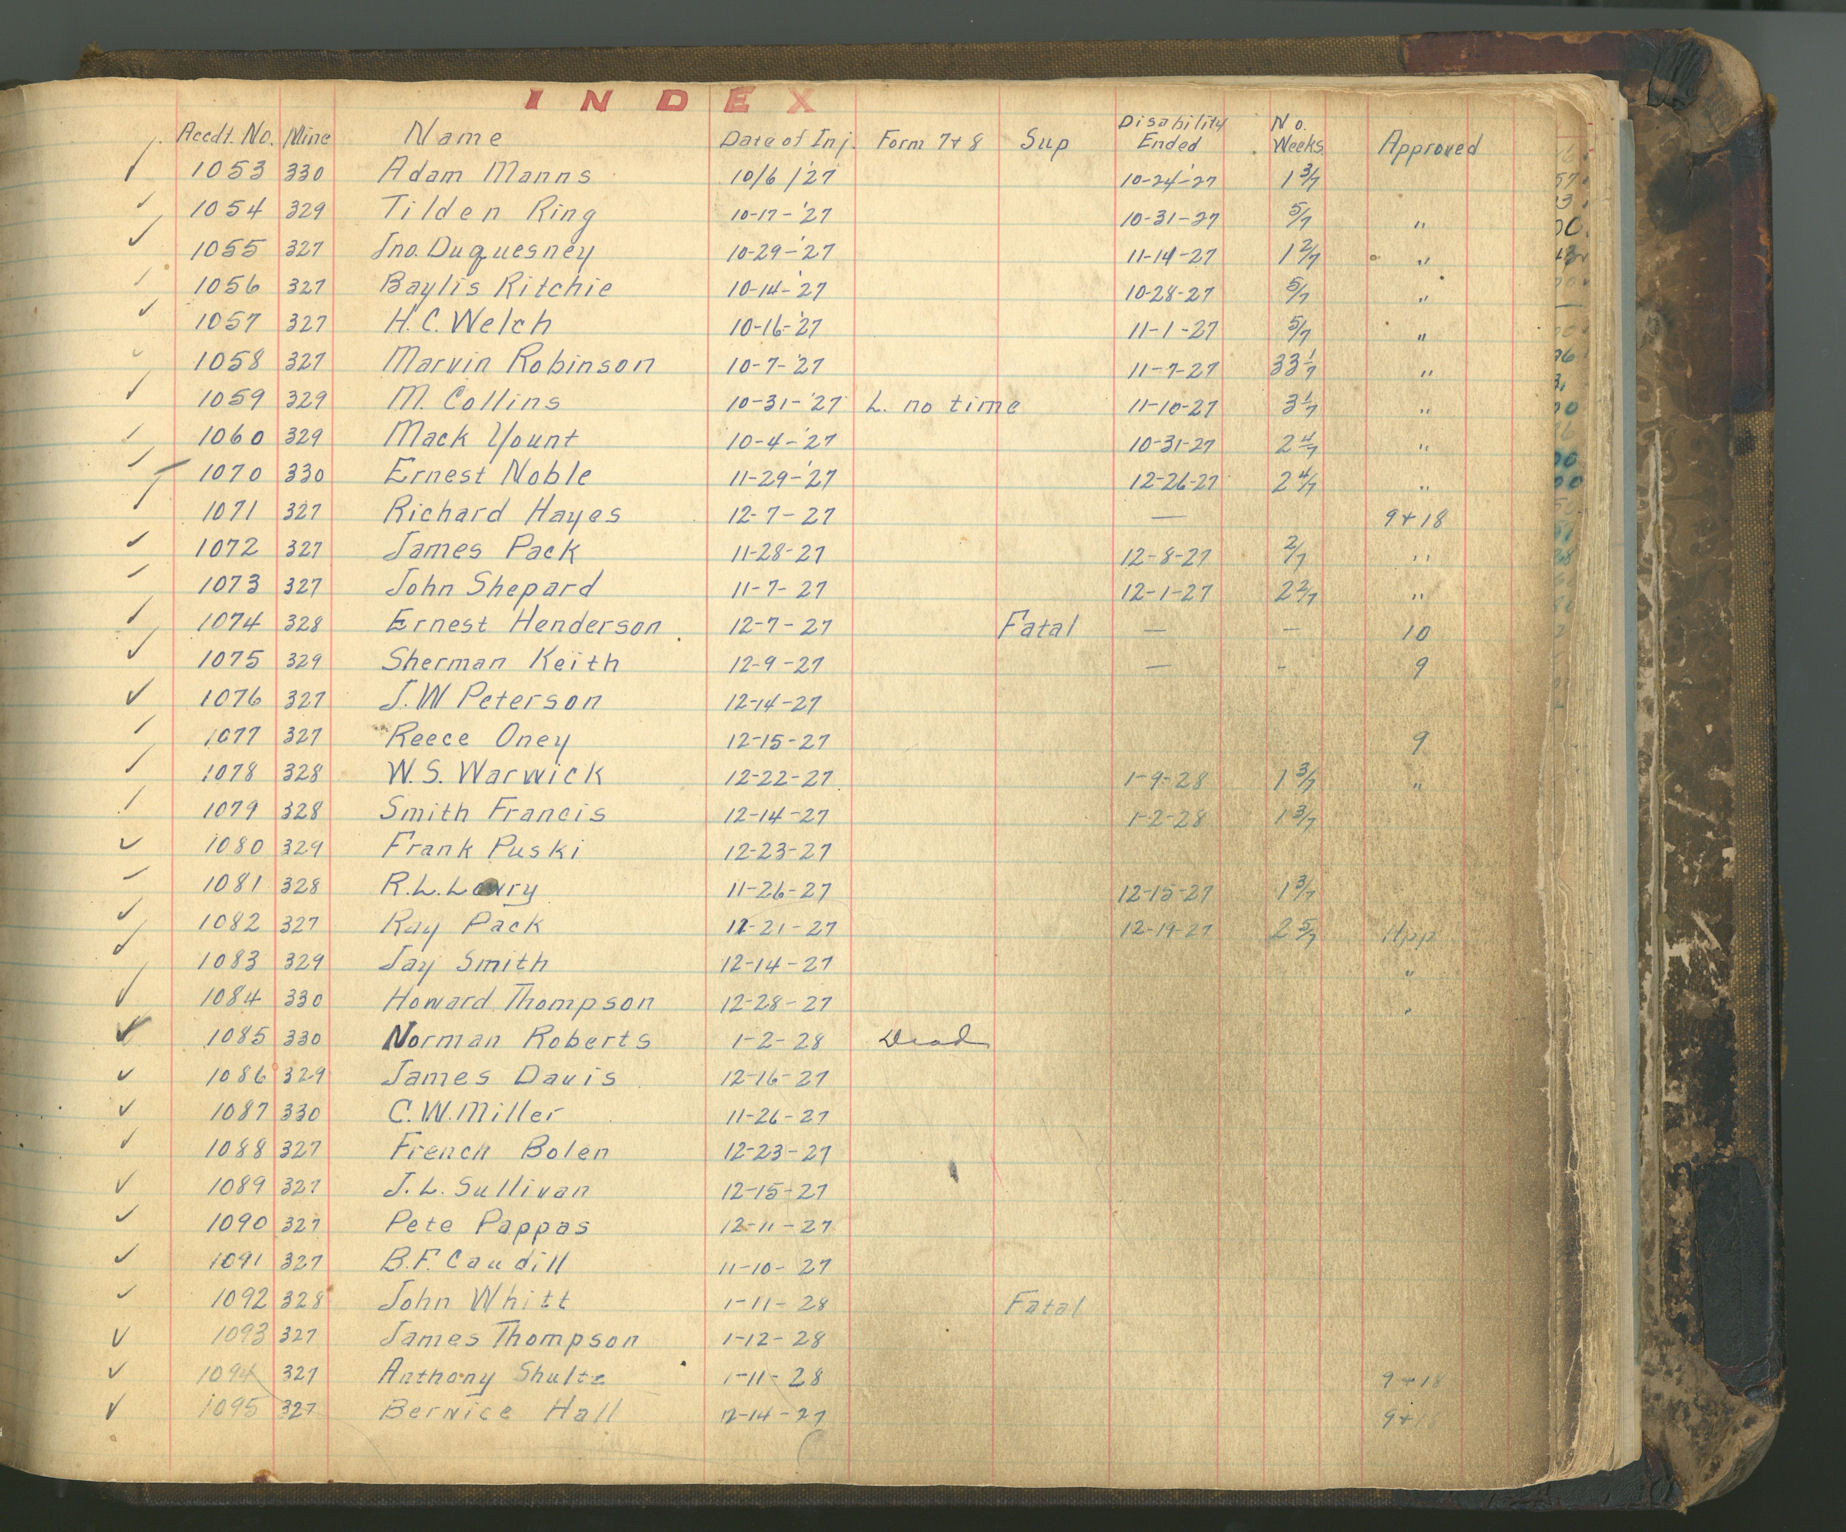 INDEX
Accdt. No. Mine Name Date of Inj. Form 7+8 Sup Disability Ended No. Weeks Approved
1053 330 Adam Manns 10/6/'27 10-24-'27 1 3/7
1054 329 Tilden Ring 10-17-'27 10-31-27 5/7 "
1055 327 Jno. Duquesney 10-29-'27 11-14-27 1 2/7 "
1056 327 Baylis Ritchie 10-14-'27 10-28-27 5/7 "
1057 327 H.C. Welch 10-16-'27 11-1-27 5/7 "
1058 327 Marvin Robinson 10-7-'27 11-7-27 33 1/7 "
1059 329 M. Collins 10-31-'27 L. no time 11-10-27 3 1/7 "
1060 329 Mack Yount 10-4-'27 10-31-27 2 4/7 "
1070 330 Ernest Noble 11-29-'27 12-26-27 2 4/7 "
1071 327 Richard Hayes 12-7-27 — 9+18
1072 327 James Pack 11-28-27 12-8-27 2/7 "
1073 327 John Shepard 11-7-27 12-1-27 2 2/7 "
1074 328 Ernest Henderson 12-7-27 Fatal — — 10
1075 329 Sherman Keith 12-9-27 — - 9
1076 327 J.W Peterson 12-14-27
1077 327 Reece Oney 12-15-27 9
1078 328 W.S. Warwick 12-22-27 1-9-28 1 3/7 "
1079 328 Smith Francis 12-14-27 1-2-28 1 3/7
1080 329 Frank Puski 12-23-27
1081 328 R.L. Lowry 11-26-27 12-15-27 1 3/7
1082 327 Ray Pack 11-21-27 12-19-27 2 5/7 App
1083 329 Jay Smith 12-14-27 "
1084 330 Howard Thompson 12-28-27 "
1085 330 Norman Roberts 1-2-28 Dead
1086 329 James Davis 12-16-27
1087 330 C.W. Miller 11-26-27
1088 327 French Bolen 12-23-27
1089 327 J.L. Sullivan 12-15-27
1090 327 Pete Pappas 12-11-27
1091 327 B.F. Caudill 11-10-27
1092 328 John Whitt 1-11-28 Fatal
1093 327 James Thompson 1-12-28
1094 327 Anthony Shultz 1-11-28 9+18
1095 327 Bernice Hall 12-14-27